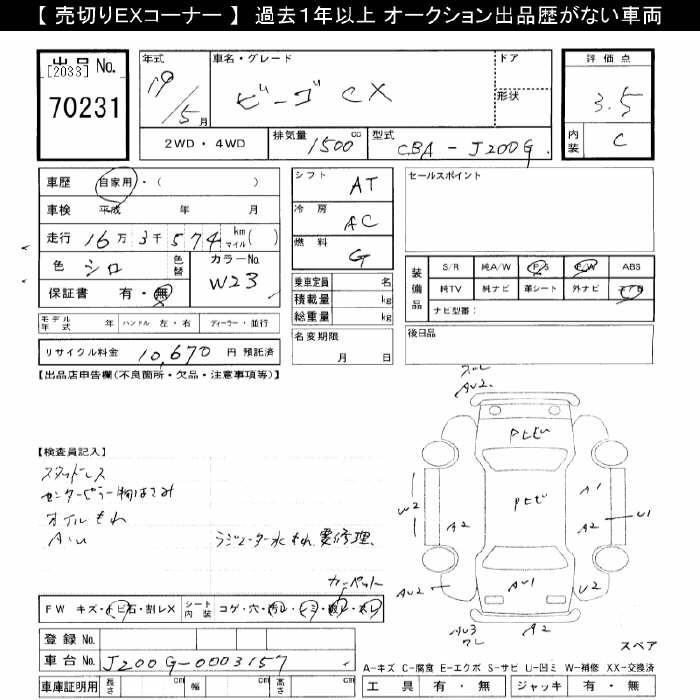 【 売切りEXコーナー 】 過去1年以上 オークション出品歴がない車両
出品 No.
[2033]
70231
年式
19/5月
車名・グレード
ビーゴ CX
ドア
形状
2WD・4WD
排気量 1500 cc
型式 CBA-J200G
評価点
3.5
内装 C
車歴 自家用・( )
車検 平成 年 月
走行 16万3千574 km マイル( )
色 シロ
色替
カラーNo. W23
保証書 有・無
シフト AT
冷房 AC
燃料 G
乗車定員 名
積載量 kg
総重量 kg
名変期限
月 日
セールスポイント
装備品
S/R 純A/W P/S P/W ABS
純TV 純ナビ 革シート 外ナビ エアB
ナビ型番:
後日品
モデル年式 年 ハンドル 左・右 ディーラー・並行
リサイクル料金 10,670 円 預託済
【出品店申告欄(不良箇所・欠品・注意事項等)】
【検査員記入】
スタッドレス
センターピラー物はさみ
オイルもれ
ラジエーター水もれ 要修理
カーペット
AU2
W2
A2
A1
A2
U1
AU2
AU1
U2
AU3
ワレ
A2
FW キズ・トビ石・割レX
シート内装 コゲ・穴・汚レ・シミ・破レ・スレ
登録 No.
車台 No. J200G-0003157
車庫証明用 長さ cm 幅 cm 高さ cm
スペア
A-キズ C-腐食 E-エクボ S-サビ U-凹ミ W-補修 XX-交換済
工具 有・無 ジャッキ 有・無